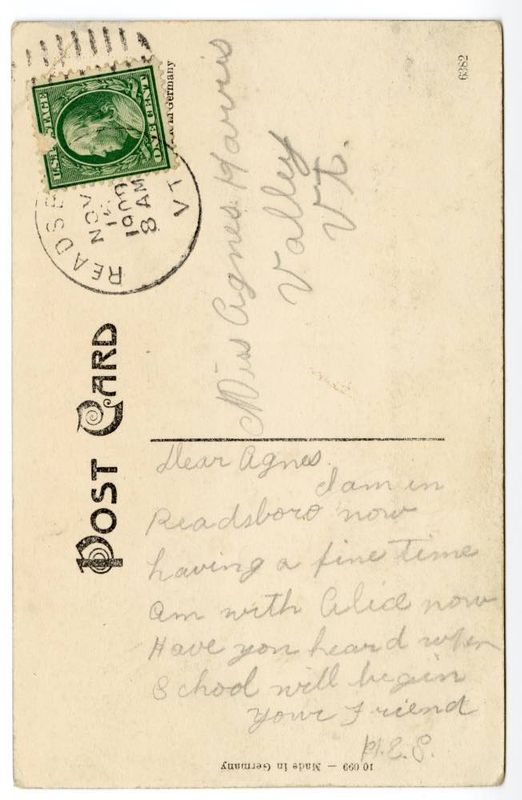 POST CARD
U.S. POSTAGE
ONE CENT
READSB
NOV
12
1909
8 AM
VT
in Germany
6382
Miss Agnes Harris
Valley
Vt.
Dear Agnes,
I am in
Readsboro now
having a fine time
am with Alice now
Have you heard when
School will begin
Your Friend
H.E.S.
10 099 – Made in Germany